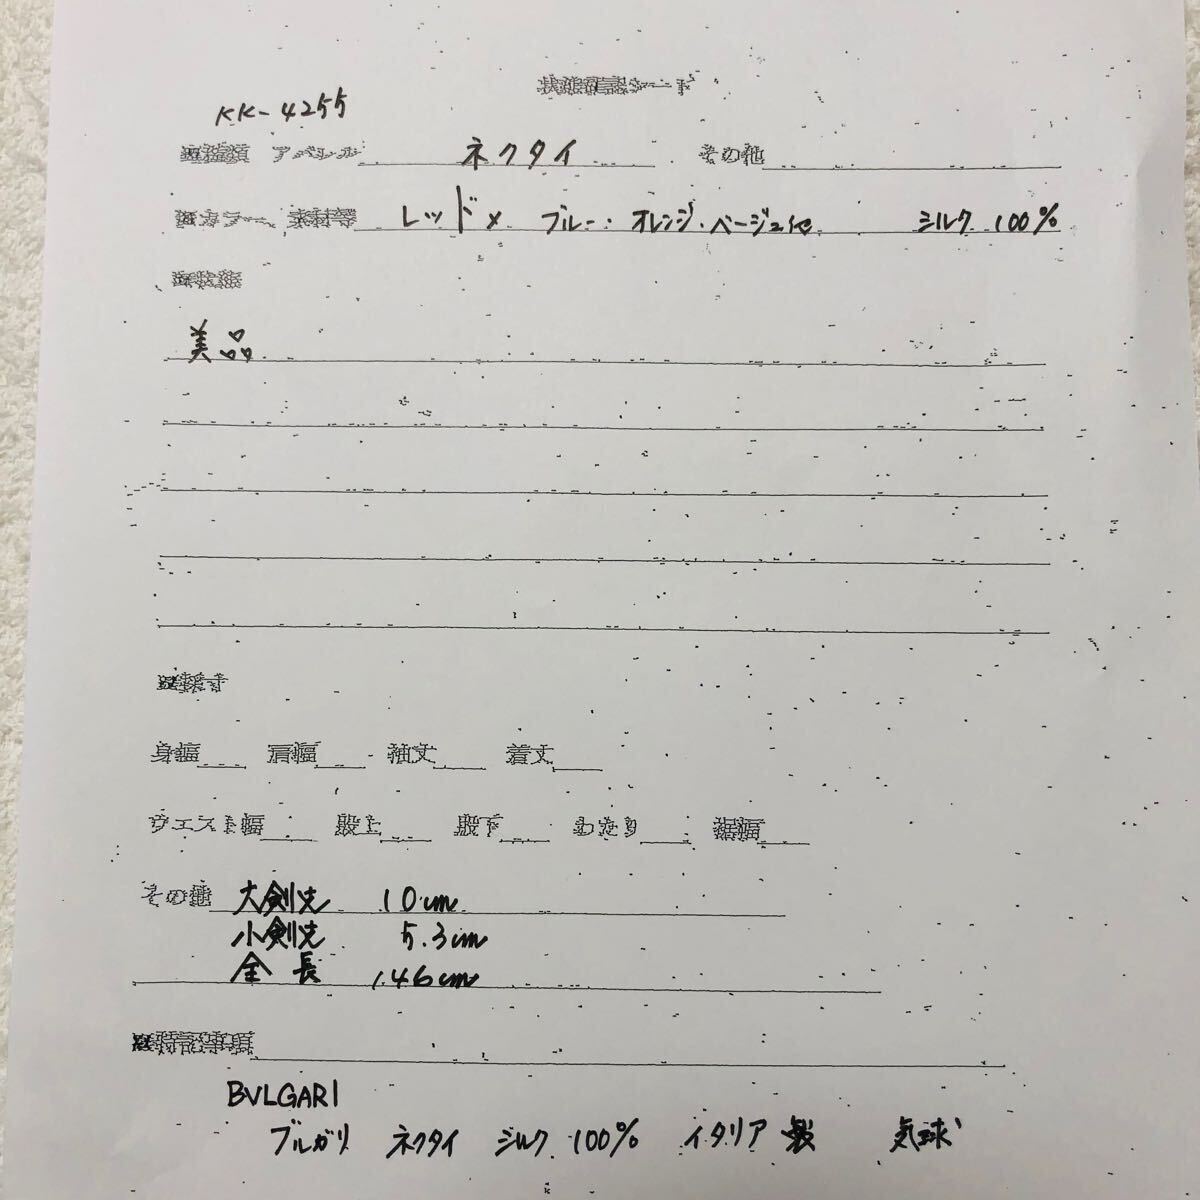 状態確認シート
KK-4255
アパレル ネクタイ その他
カラー、素材等 レッド× ブルー・オレンジ・ベージュ他 シルク 100%
美品
身幅 肩幅 袖丈 着丈
ウエスト幅 股上 股下 わたり 裾幅
その他 大剣先 10cm
小剣先 5.3cm
全長 146cm
特記事項
BVLGARI
ブルガリ ネクタイ シルク 100% イタリア製 気球